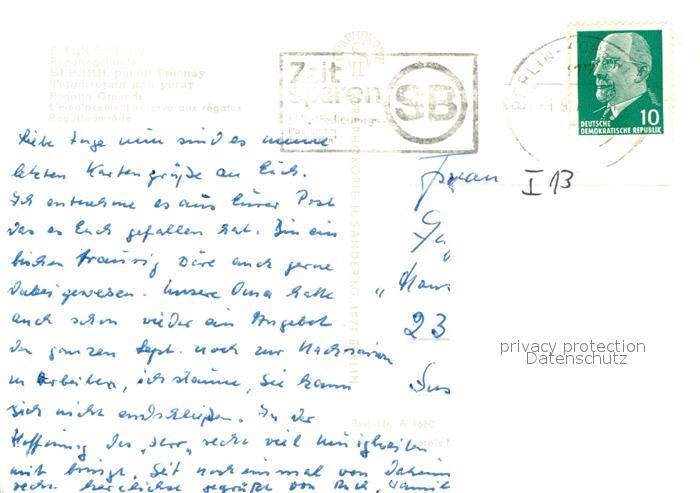 BERLIN-GRÜNAU
Regattagelände
БЕРЛИН, район Грюнау
Территория для регат
Regatta Grounds
L'emplacement réservé aux régates
Regattaområde
Zeit
sparen
SB
BERLIN
DEUTSCHE
DEMOKRATISCHE REPUBLIK
10
I 13
Liebe nun sind es meine
letzten Kartengrüße an Euch.
Ich entnehme es aus Eurer Post
das es Euch gefallen hat. Bin ein
bischen traurig wäre auch gerne
dabei gewesen. Unsere Oma hatte
auch schon wieder ein Angebot
den ganzen Sept. noch zur Nachsaison
zu arbeiten, ich staune, sie kann
sich nicht entschließen. In der
Hoffnung das recht viel Neuigkeiten
mit bringt. Seit noch einmal von
recht herzlichste gegrüßt von
Frau
"Haus
23
H. SANDER KG, 1071 BERLIN
Best.-Nr. A 168C
privacy protection
Datenschutz